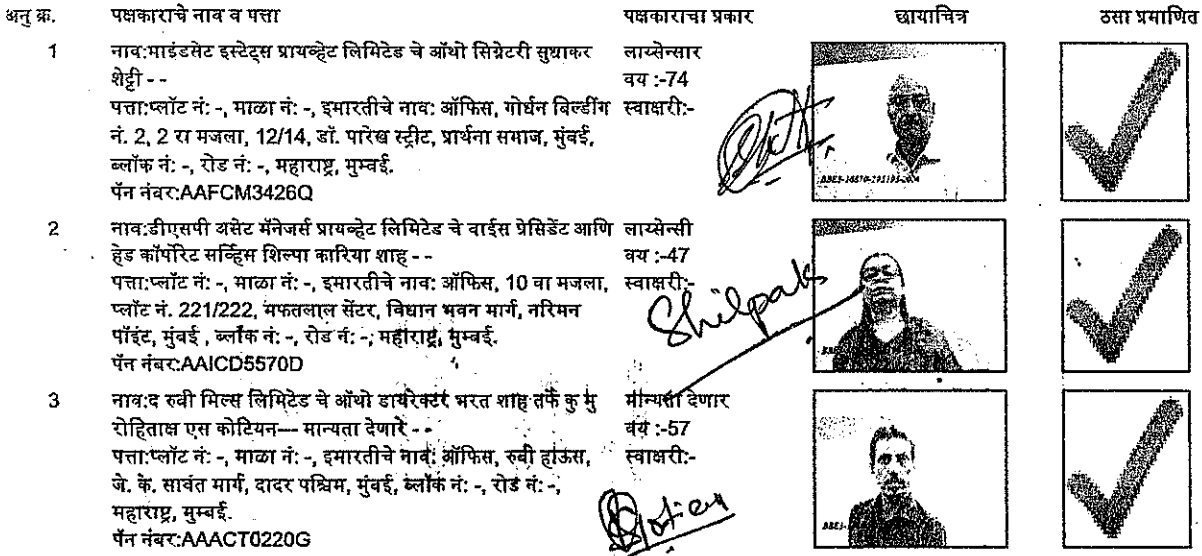 अनु क्र. पक्षकाराचे नाव व पत्ता पक्षकाराचा प्रकार छायाचित्र ठसा प्रमाणित
1 नाव:माइंडसेट इस्टेट्स प्रायव्हेट लिमिटेड चे ऑथो सिग्नेटरी सुधाकर लाय्सेन्सार
शेट्टी - - वय :-74
पत्ता:प्लॉट नं: -, माळा नं: -, इमारतीचे नाव: ऑफिस, गोर्धन बिल्डींग स्वाक्षरी:-
नं. 2, 2 रा मजला, 12/14, डॉ. पारेख स्ट्रीट, प्रार्थना समाज, मुंबई,
ब्लॉक नं: -, रोड नं: -, महाराष्ट्र, मुम्बई.
पॅन नंबर:AAFCM3426Q
2 नाव:डीएसपी असेट मॅनेजर्स प्रायव्हेट लिमिटेड चे वाईस प्रेसिडेंट आणि लाय्सेन्सी
हेड कॉर्पोरेट सर्व्हिस शिल्पा कारिया शाह - - वय :-47
पत्ता:प्लॉट नं: -, माळा नं: -, इमारतीचे नाव: ऑफिस, 10 वा मजला, स्वाक्षरी:-
प्लॉट नं. 221/222, मफतलाल सेंटर, विधान भवन मार्ग, नरिमन
पॉइंट, मुंबई , ब्लॉक नं: -, रोड नं: -, महाराष्ट्र, मुम्बई.
पॅन नंबर:AAICD5570D
3 नाव:द रुबी मिल्स लिमिटेड चे ऑथो डायरेक्टर भरत शाह तर्फे कु मु मान्यता देणार
रोहिताक्ष एस कोटियन--- मान्यता देणारे - - वय :-57
पत्ता:प्लॉट नं: -, माळा नं: -, इमारतीचे नाव: ऑफिस, रुबी हाऊस, स्वाक्षरी:-
जे. के. सावंत मार्ग, दादर पश्चिम, मुंबई, ब्लॉक नं: -, रोड नं: -,
महाराष्ट्र, मुम्बई.
पॅन नंबर:AAACT0220G